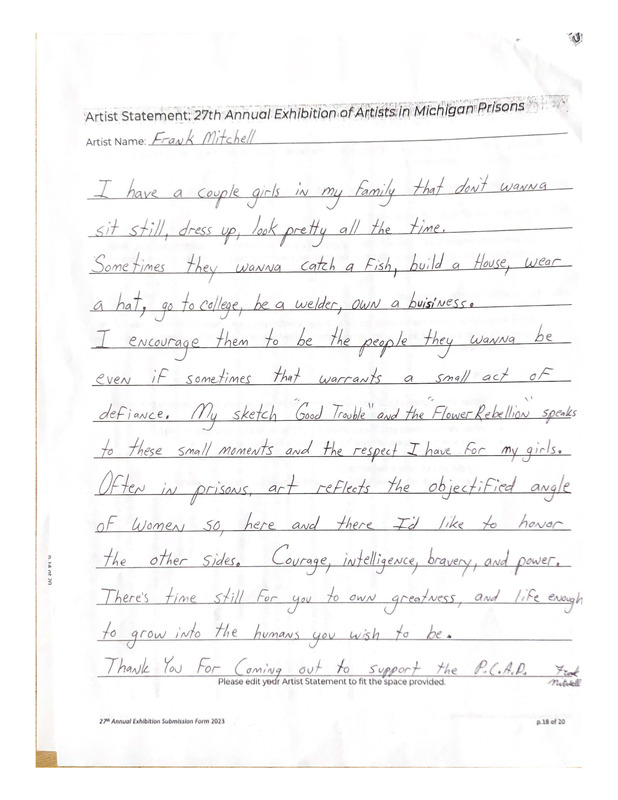 Artist Statement: 27th Annual Exhibition of Artists in Michigan Prisons
Artist Name: Frank Mitchell
I have a couple girls in my family that don't wanna
sit still, dress up, look pretty all the time.
Sometimes they wanna catch a Fish, build a House, wear
a hat, go to college, be a welder, own a buisiness.
I encourage them to be the people they wanna be
even if sometimes that warrants a small act of
defiance. My sketch "Good Trouble" and the "Flower Rebellion" speaks
to these small moments and the respect I have for my girls.
Often in prisons, art reflects the objectified angle
of Women so, here and there I'd like to honor
the other sides. Courage, intelligence, bravery, and power.
There's time still for you to own greatness, and life enough
to grow into the humans you wish to be.
Thank You For Coming out to support the P.C.A.P. Frank
Mitchell
Please edit your Artist Statement to fit the space provided.
27th Annual Exhibition Submission Form 2023 p.18 of 20